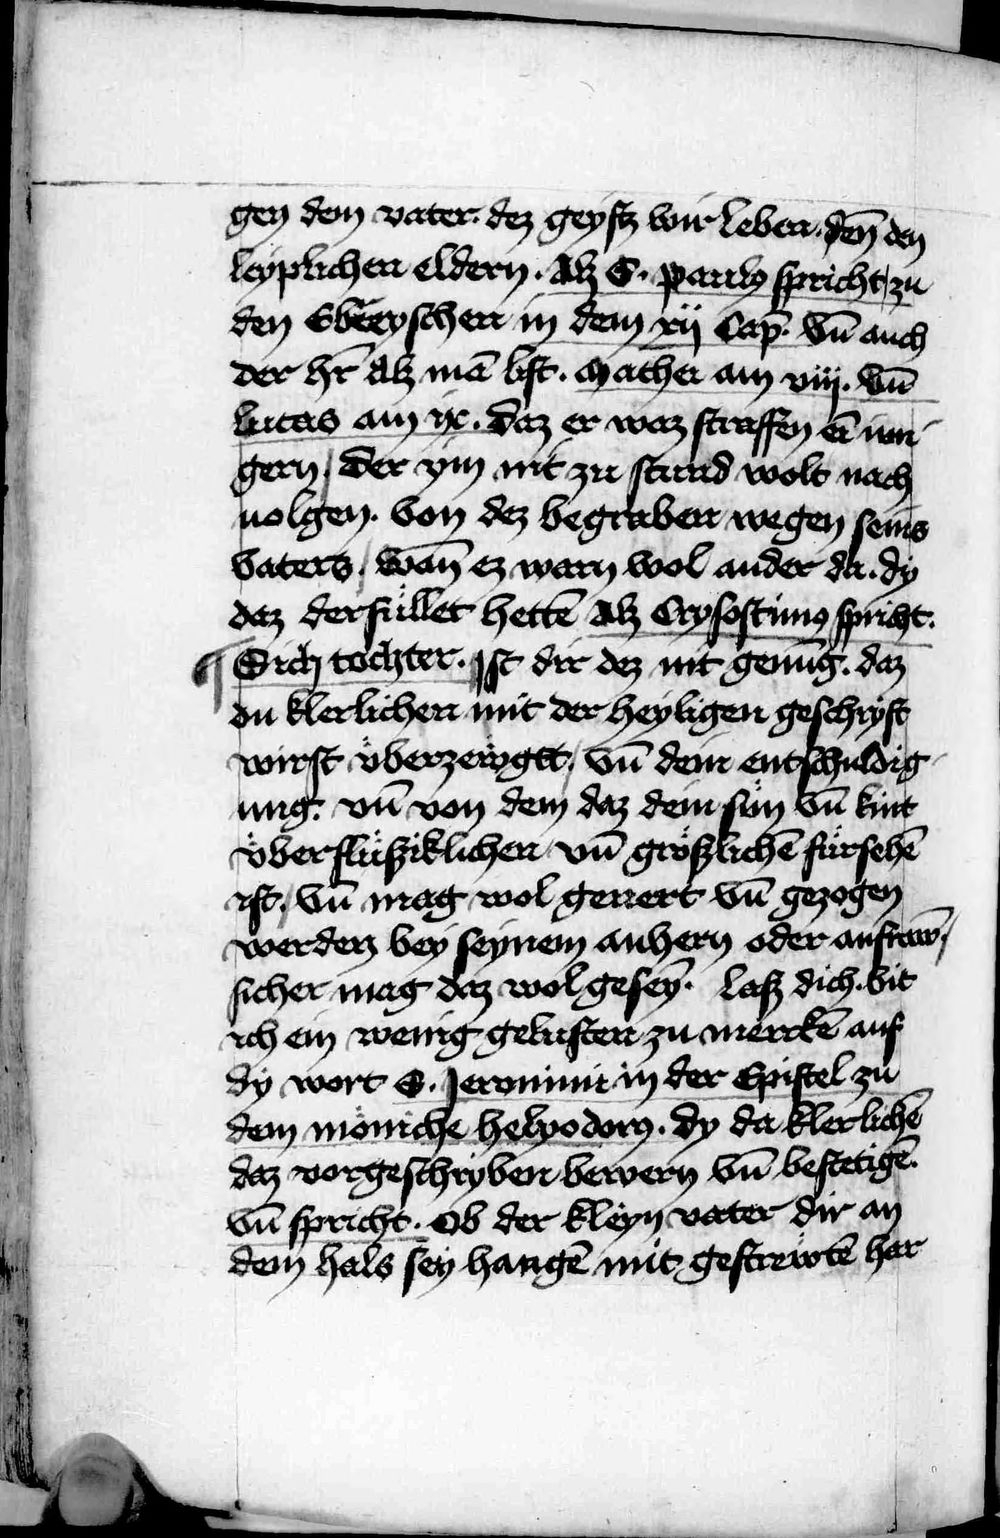 gen dem vater. dez geystz wir leben. deñ den
leyplichen eldern. Alz S. Paulus spricht zu
den Ebreyschen in dem xij Cap̄. Vn̄ auch
der hr̄ Alz mā list. Mathei am viij. Vn̄
lucas am ix. Daz er waz straffen eī iun
gern. Der ym nit zu stund wolt nach
uolgen. Von dez begraben wegen seins
vaters. Wan̄ ez warn wol ander da. dy
daz derfüllet hettē Alz Crysostimus spricht.
¶ Sich tochter. Ist dir dez nit genüg. daz
du klerlichen mit der heyligen geschryft
wirst v̈berzewgtt. Vn̄ dein entschuldig
ung. vn̄ von dem daz dein sün Vn̄ kint
v̈berflüßiklichen vn̄ größlichē fürsehē
ist. Vn̄ mag wol genert Vn̄ gezogen
werden bey seynem anhern oder anfraw̄.
sicher mag daz wol gesey̅. laß dich. bit
ich ein wenig gelusten zu merckē auf
dy wort S. Jeronimi in der Epistel zu
dem möniche helyodorus. dy da klerlichē
daz vorgeschryben bewern Vn̄ bestetigē.
Vn̄ spricht. Ob der kleyn vater dir an
dem hals sey hangē mit gestrewtē har